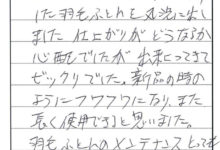 した羽毛ふとんを丸洗に出し
ました 仕上がりがどうなるか
心配でしたが 出来上ってきて
ビックリでした。新品の時の
ようにフワフワになり、また
長く使用できると思いました。
羽毛ふとんのメンテナンスとっても